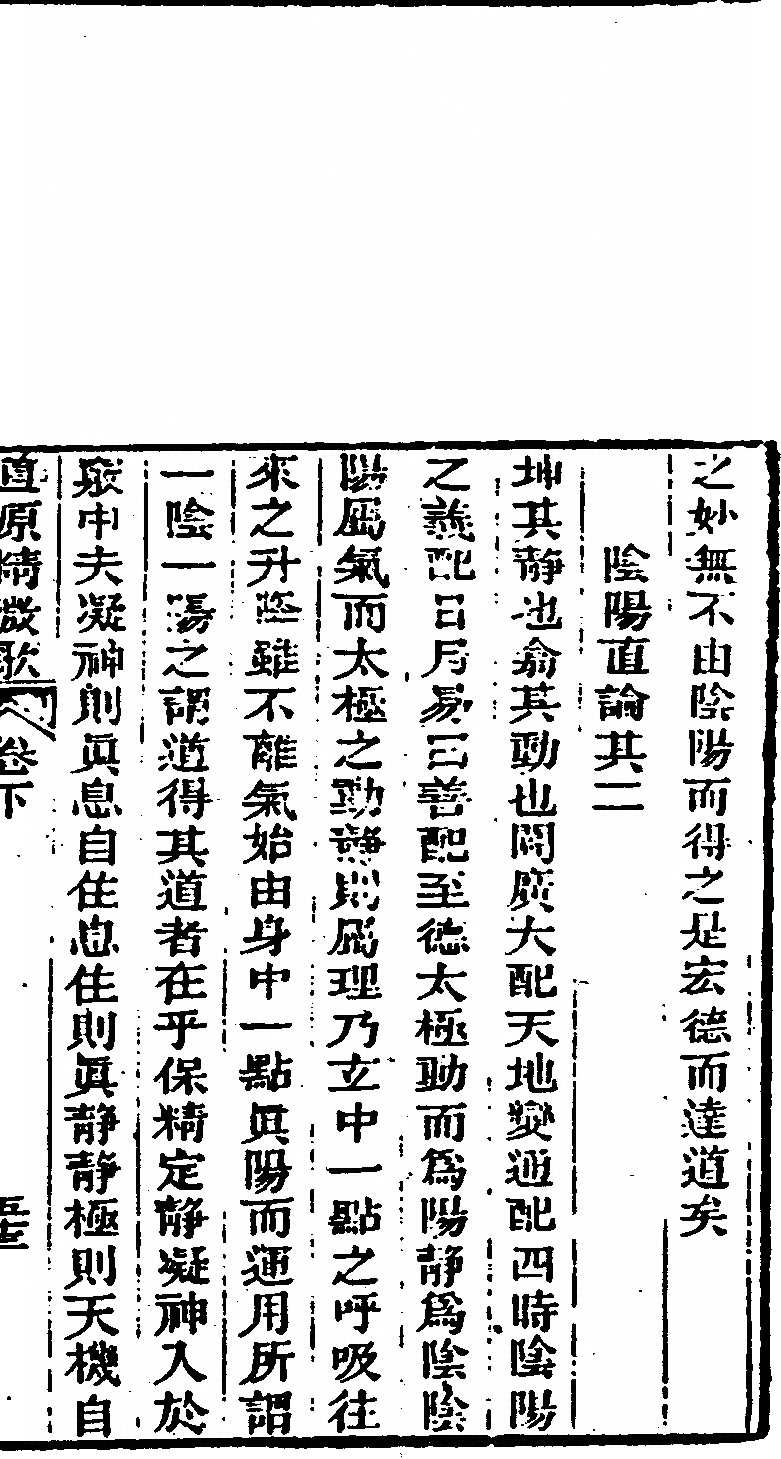 之妙無不由陰陽而得之是宏德而達道矣
陰陽直論其二
坤其靜也翕其動也闢廣大配天地變通配四時陰陽
之義配日月易曰善配至德太極動而爲陽靜爲陰陰
陽屬氣而太極之動靜則屬理乃立中一點之呼吸往
來之升降雖不離氣始由身中一點眞陽而運用所謂
一陰一陽之謂道得其道者在乎保精定靜凝神入於
竅中夫凝神則眞息自住息住則眞靜靜極則天機自
直原精微歌 卷下